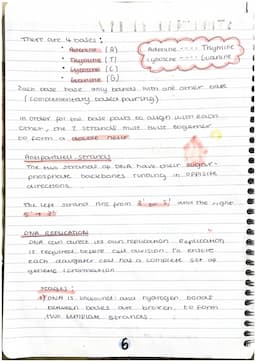 There are 4 bases:
• Adenine (A)
• Thymine (T)
• Cytosine (C)
• Guanine (G)
Adenine ---- Thymine
Cytosine ---- Guanine
Each base only bonds with one other base
(complementary base pairing)
In order for the base pairs to align with each
other, the 2 strands must twist together
to form a double helix
Antiparallel strands
The two strands of DNA have their sugar-
phosphate backbones running in opposite
directions.
The left strand runs from and the right
DNA REPLICATION
DNA can direct its own replication. Replication
is required before cell division to ensure
each daughter cell has a complete set of
genetic information
STAGES:
1) DNA is and hydrogen bonds
between bases are broken, to form
two template strands.
6